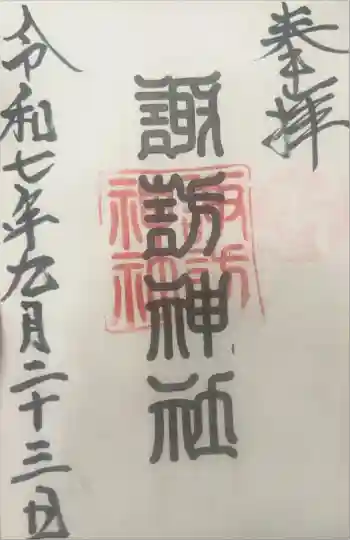 奉拝
諏訪神社
諏訪神社
令和七年九月二十三日